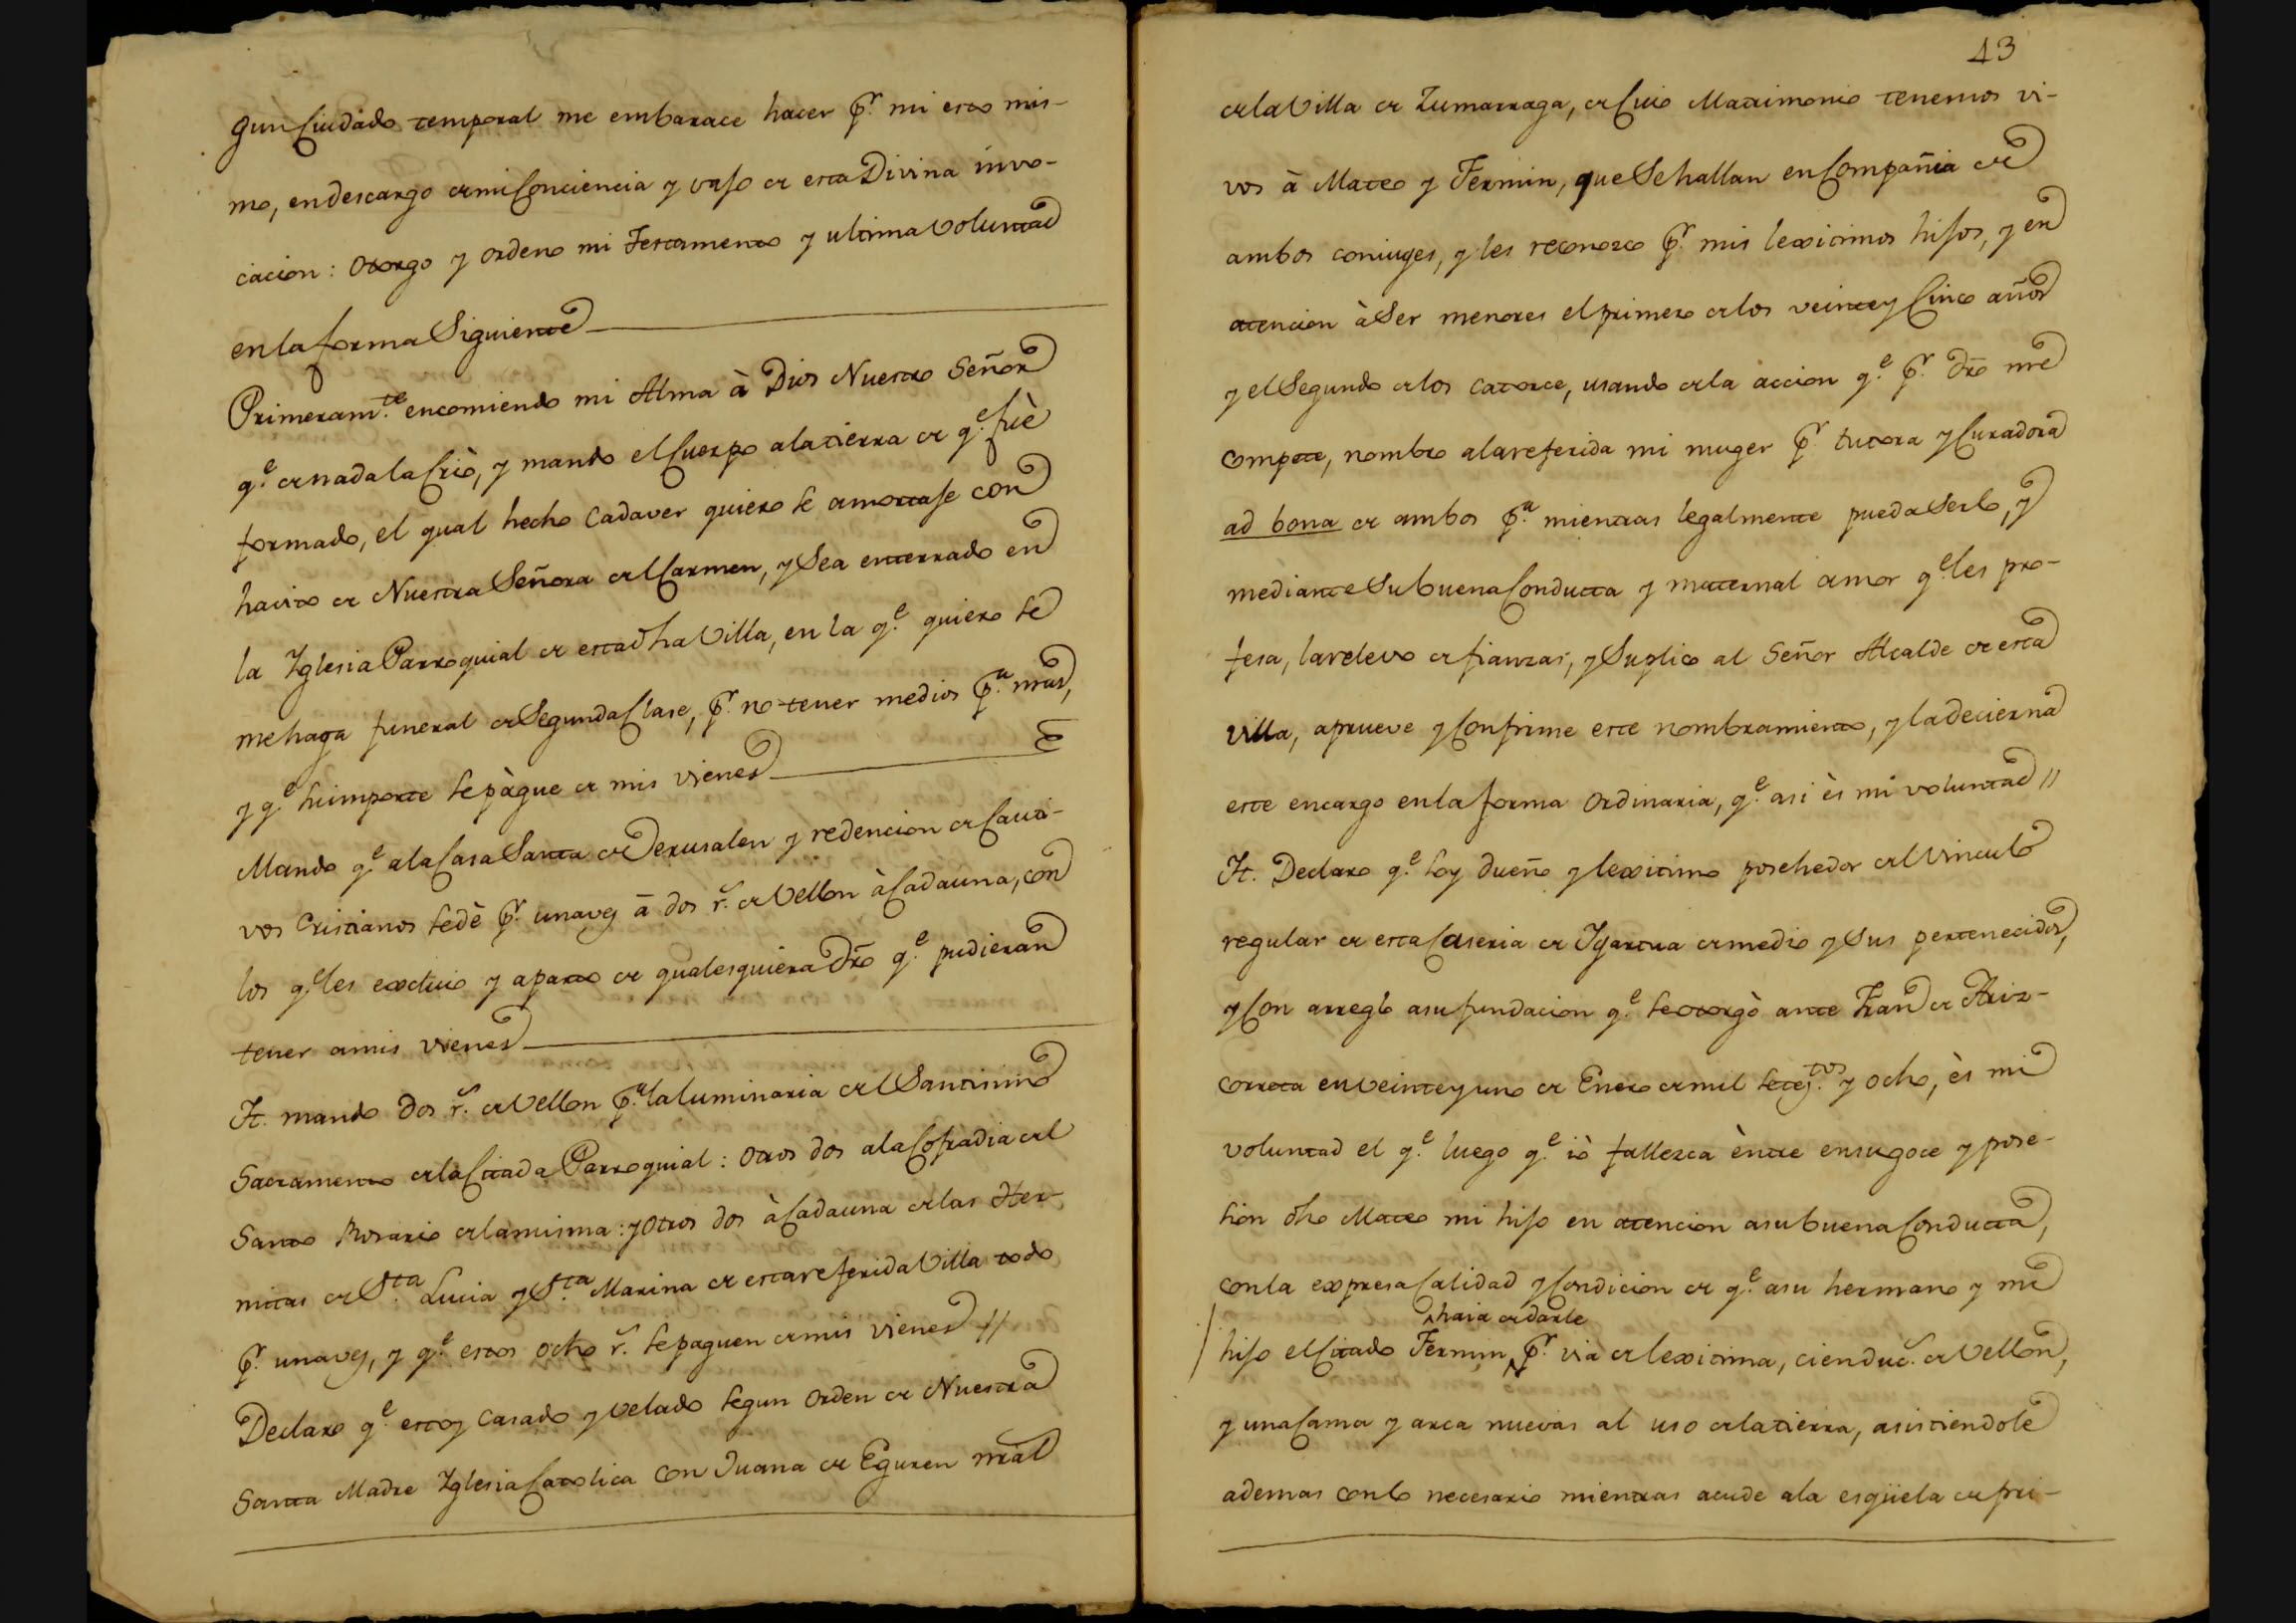 gun Cuidado temporal me embarace hacer pr. mi esto mis-
mo, en descargo de mi Conciencia y vajo de esta Divina invo-
cacion: otorgo y ordeno mi Testamento y ultima Voluntad
en la forma Siguiente
Primeramte. encomiendo mi Alma à Dios Nuestro Señor
qe. de nada la Criò, y mando el Cuerpo a la tierra de qe. fuè
formado, el qual hecho Cadaver quiero se amortaje con
havito de Nuestra Señora del Carmen, y Sea enterrado en
la Iglesia Parroquial de esta dha Villa, en la qe. quiero se
me haga funeral de Segunda Clase, pr. no tener medios pa. mas,
y qe. su importe se pàgue de mis vienes
Mando qe. a la Casa Santa de Jerusalen y redencion de Cauti-
vos Cristianos se dè pr. una vez à dos rs. de Vellon à Cada una, con
los qe. les excluio y aparto de qualesquiera dro qe. pudieran
tener a mis vienes
It. mando dos rs. de Vellon pa. la luminaria del Santisimo
Sacramento de la Citada Parroquial: otros dos a la Cofradia del
Santo Rosario de la misma: y otros dos à Cada una de las Her-
mitas de Sta. Lucia y Sta. Marina de esta referida Villa todo
pr. una vez, y qe. estos ocho rs. se paguen de mis vienes //
Declaro qe. estoy Casado y velado segun orden de Nuestra
Santa Madre Iglesia Catolica con Juana de Eguren nral
43
de la Villa de Zumarraga, de Cuio Matrimonio tenemos vi-
vos à Mateo y Fermin, que Se hallan en Compañia de
ambos coniuges, y les reconozco pr. mis lexitimos hijos, y en
atencion à Ser menores el primero de los veinte y Cinco años
y el Segundo de los catorce, usando de la accion qe. pr. dro me
compete, nombro a la referida mi muger pr. tutora y Curadora
ad bona de ambos pa. mientras legalmente pueda Serlo, y
mediante Su buena Conducta y maternal amor qe. les pro-
fesa, la relevo de fianzas, y Suplico al Señor Alcalde de esta
villa, aprueve y Confirme este nombramiento, y la decierna
este encargo en la forma ordinaria, qe. asi ès mi voluntad //
It. Declaro qe. soy dueño y lexitimo posehedor del Vinculo
regular de esta Caseria de Ygartua de medio y Sus pertenecidos,
y Con arreglo a su fundacion qe. se otorgò ante Fran de Ariz-
correta en veinte y uno de Enero de mil seteztos. y ocho, ès mi
voluntad el qe. luego qe. iò fallezca èntre en su goce y pose-
sion dho Mateo mi hijo en atencion a su buena Conducta,
con la expresa Calidad y Condicion de qe. a su hermano y mi
haia de darle
hijo el Citado Fermin pr. via de lexitima, cien ducs. de Vellon,
y una Cama y arca nuevas al uso de la tierra, asistiendole
ademas con lo necesario mientras acude a la esqüela de pri-